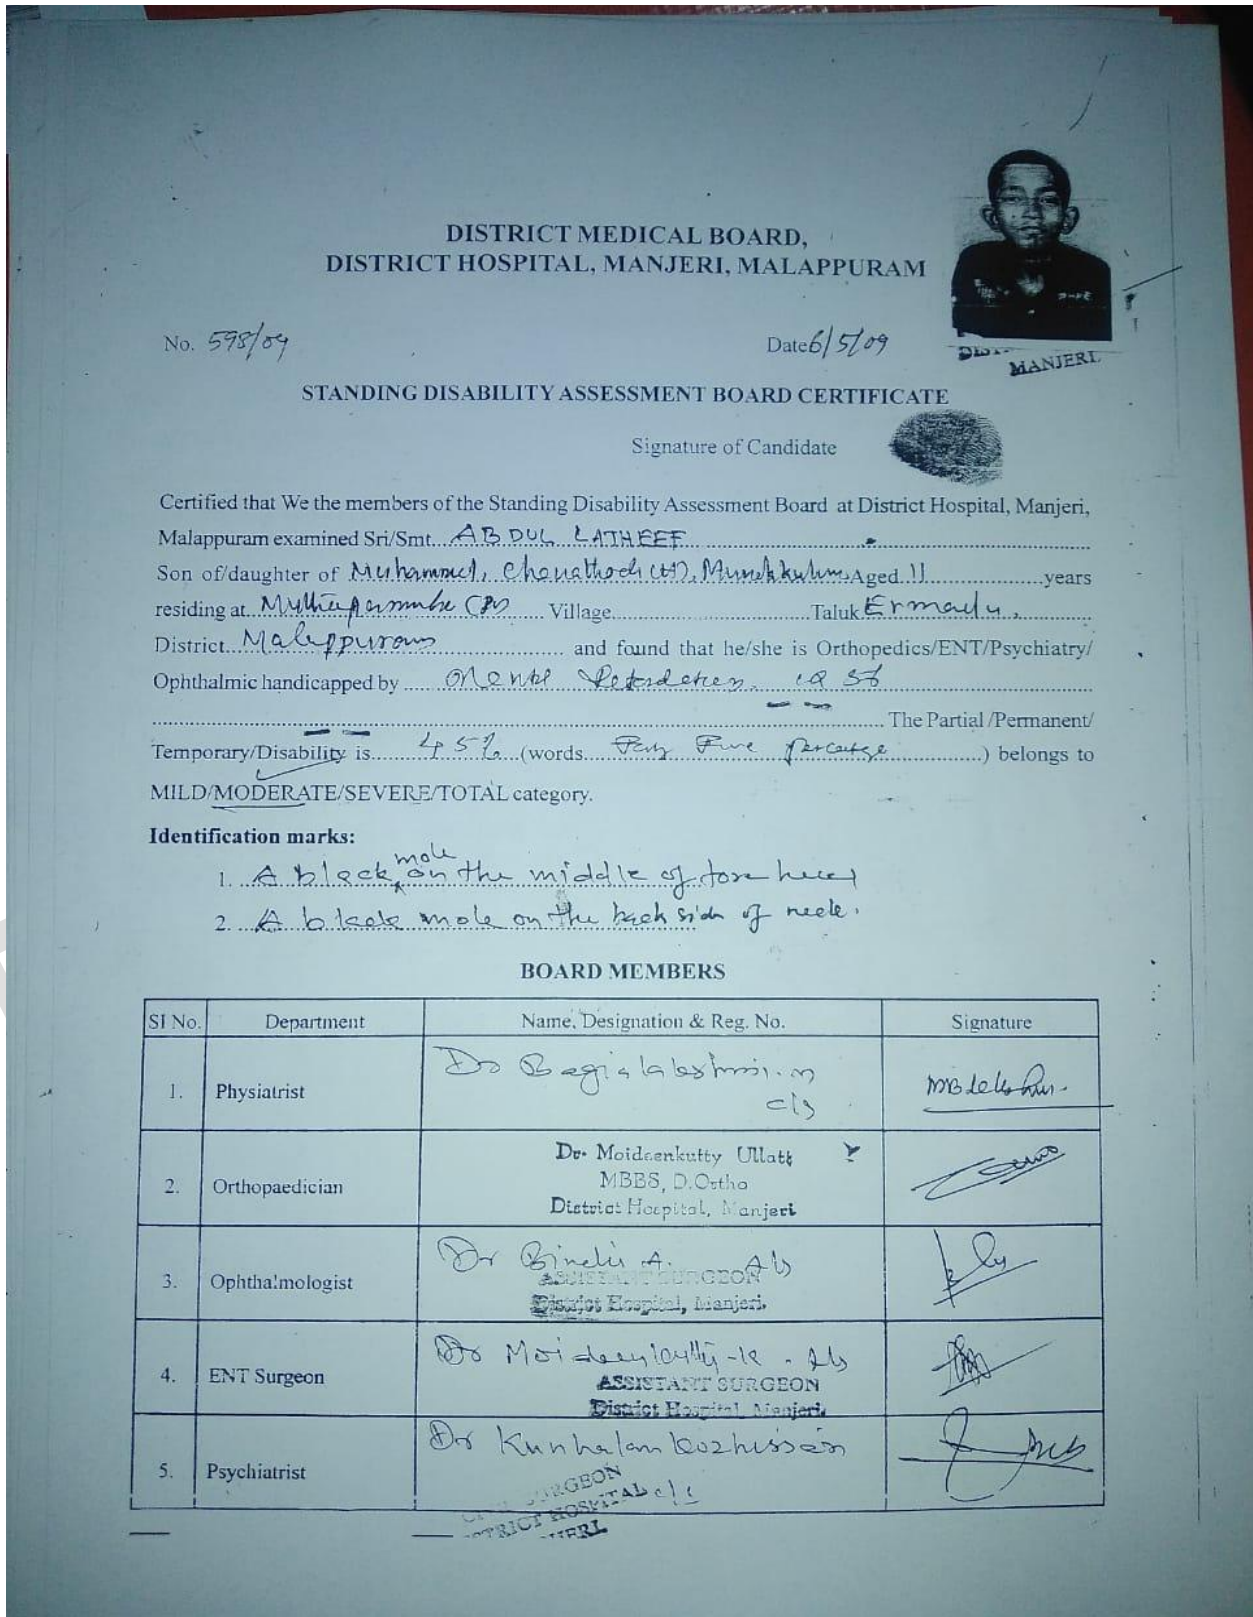 DISTRICT MEDICAL BOARD,
DISTRICT HOSPITAL, MANJERI, MALAPPURAM
No. 598/09
Date 6/5/09
MANJERI.
STANDING DISABILITY ASSESSMENT BOARD CERTIFICATE
Signature of Candidate
Certified that We the members of the Standing Disability Assessment Board at District Hospital, Manjeri,
Malappuram examined Sri/Smt. ABDUL LATHEEF
Son of/daughter of Aged 11 years
residing at Village Taluk
District Malappuram and found that he/she is Orthopedics/ENT/Psychiatry/
Ophthalmic handicapped by IQ
The Partial /Permanent/
Temporary/Disability is 45% (words Five ) belongs to
MILD/MODERATE/SEVERE/TOTAL category.
Identification marks:
1. A black mole on the middle of fore head
2. A black mole on the back side of neck.
BOARD MEMBERS
SI No. Department Name, Designation & Reg. No. Signature
1. Physiatrist Dr
2. Orthopaedician Dr. Moideenkutty Ullatt
MBBS, D.Ortho
District Hospital, Manjeri
3. Ophthalmologist Dr Bindu A.
ASSISTANT SURGEON
District Hospital, Manjeri.
4. ENT Surgeon Dr Moideenkutty-K
ASSISTANT SURGEON
District Hospital, Manjeri.
5. Psychiatrist Dr
SURGEON
HOSPITAL